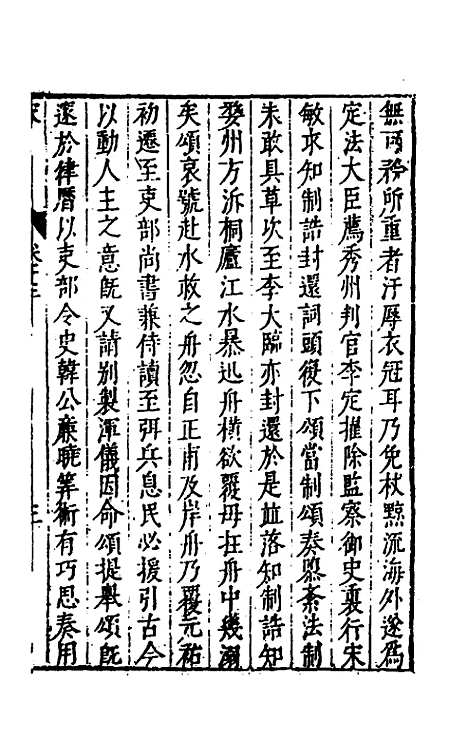 無可矜所重者汙辱衣冠耳乃免杖黥流海外遂爲
定法大臣薦秀州判官李定擢除監察御史裏行宋
敏求知制誥封還詞頭復下頌當制頌奏愚紊法制
未敢具草次至李大臨亦封還於是並落知制誥知
婺州方泝桐廬江水暴迅舟橫欲覆母在舟中幾溺
矣頌哀號赴水救之舟忽自正甫及岸舟乃覆元祐
初遷至吏部尚書兼侍讀至弭兵息民必援引古今
以動人主之意旣又請別製渾儀因命頌提舉頌旣
邃於律曆以吏部令史韓公廉曉筭術有巧思奏用